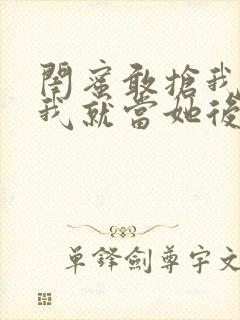 閨蜜敢搶我
我就當她後
單鋒劍尊宇文